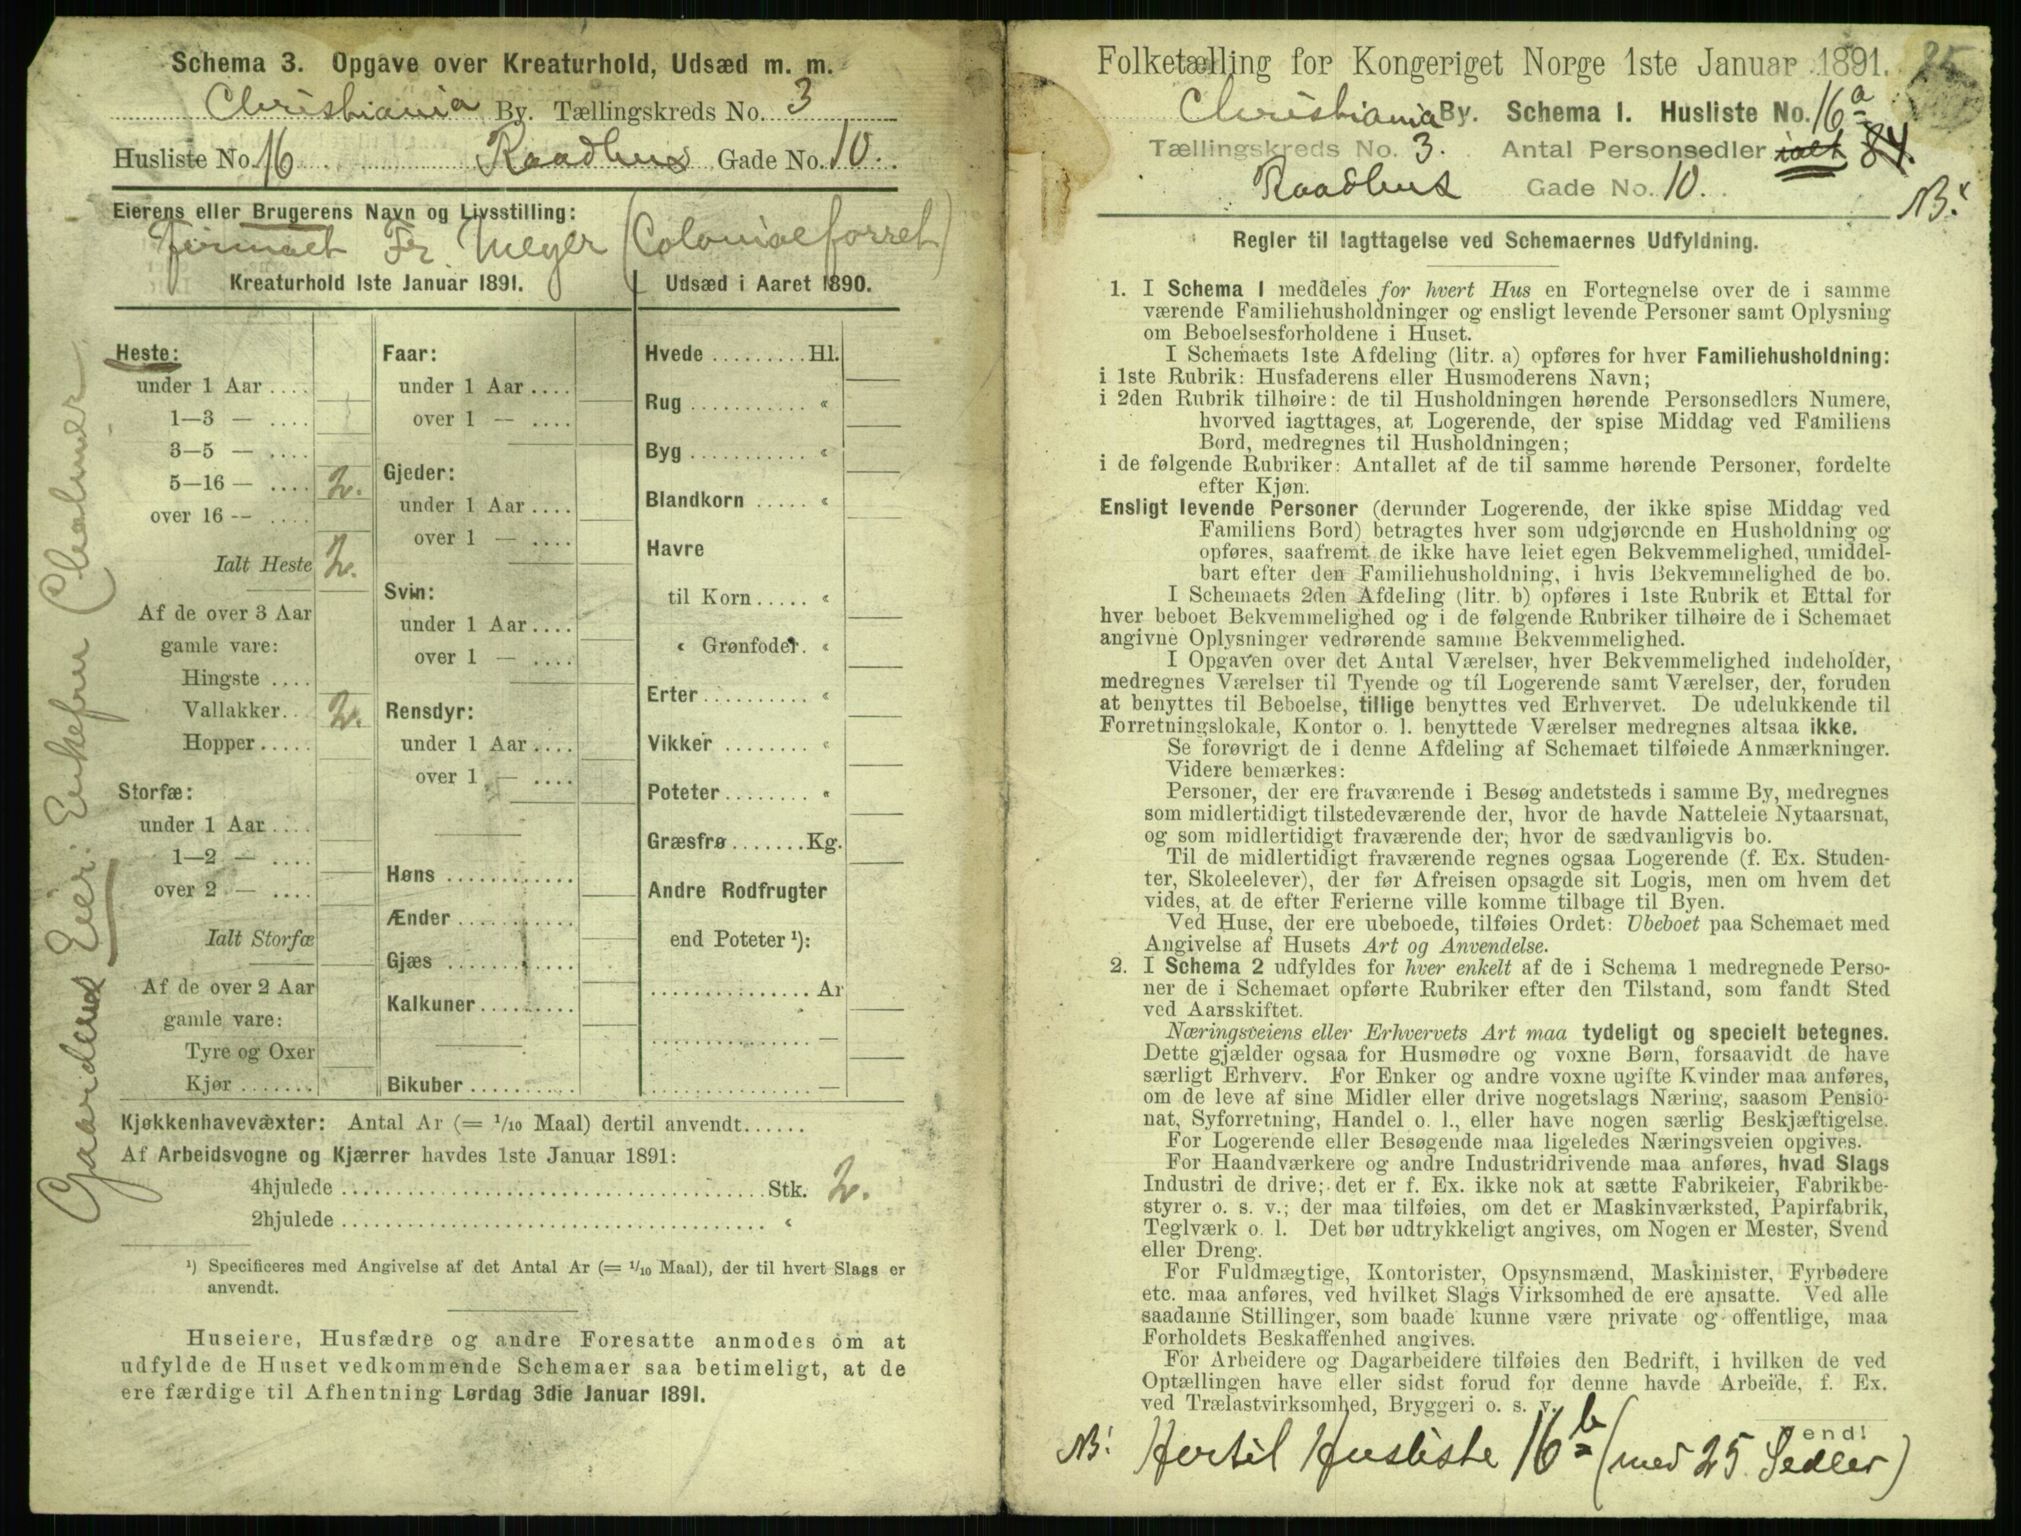 Schema 3. Opgave over Kreaturhold, Udsæd m. m.
Christiania By. Tællingskreds No. 3
Husliste No. 16 Raadhus Gade No. 10.
Eierens eller Brugerens Navn og Livsstilling:
Firmaet Fr. Meyer (Colonialforret)
Kreaturhold 1ste Januar 1891.
Heste:
under 1 Aar ....
1—3 — ....
3—5 — ....
5—16 — .... 2.
over 16 — ....
Ialt Heste 2.
Af de over 3 Aar
gamle vare:
Hingste ....
Vallakker.. 2.
Hopper.....
Storfæ:
under 1 Aar ....
1—2 — ....
over 2 — ....
Ialt Storfæ
Af de over 2 Aar
gamle vare:
Tyre og Oxer
Kjør .......
Faar:
under 1 Aar ....
over 1 — ....
Gjeder:
under 1 Aar ....
over 1 — ....
Svin:
under 1 Aar ....
over 1 — ....
Rensdyr:
under 1 Aar ....
over 1 — ....
Høns ............
Ænder ...........
Gjæs ............
Kalkuner.........
Bikuber ..........
Udsæd i Aaret 1890.
Hvede .........Hl.
Rug ........... «
Byg ........... «
Blandkorn ..... «
Havre
til Korn..... «
« Grønfoder. «
Erter.......... «
Vikker ........ «
Poteter........ «
Græsfrø .......Kg.
Andre Rodfrugter
end Poteter ¹):
............... Ar
............... —
............... —
Kjøkkenhavevæxter: Antal Ar (= 1/10 Maal) dertil anvendt......
Af Arbeidsvogne og Kjærrer havdes 1ste Januar 1891:
4hjulede ........................................ Stk. 2.
2hjulede ........................................ «
¹) Specificeres med Angivelse af det Antal Ar (= 1/10 Maal), der til hvert Slags er
anvendt.
Huseiere, Husfædre og andre Foresatte anmodes om at
udfylde de Huset vedkommende Schemaer saa betimeligt, at de
ere færdige til Afhentning Lørdag 3die Januar 1891.
Gaardens Eier: Enkefru
Folketælling for Kongeriget Norge 1ste Januar 1891.
Christiania By. Schema 1. Husliste No. 16a
Tællingskreds No. 3. Antal Personsedler ialt 84.
Raadhus Gade No. 10.
NB!
Regler til Iagttagelse ved Schemaernes Udfyldning.
1. I Schema 1 meddeles for hvert Hus en Fortegnelse over de i samme
værende Familiehusholdninger og ensligt levende Personer samt Oplysning
om Beboelsesforholdene i Huset.
I Schemaets 1ste Afdeling (litr. a) opføres for hver Familiehusholdning:
i 1ste Rubrik: Husfaderens eller Husmoderens Navn;
i 2den Rubrik tilhøire: de til Husholdningen hørende Personsedlers Numere,
hvorved iagttages, at Logerende, der spise Middag ved Familiens
Bord, medregnes til Husholdningen;
i de følgende Rubriker: Antallet af de til samme hørende Personer, fordelte
efter Kjøn.
Ensligt levende Personer (derunder Logerende, der ikke spise Middag ved
Familiens Bord) betragtes hver som udgjørende en Husholdning og
opføres, saafremt de ikke have leiet egen Bekvemmelighed, umiddel-
bart efter den Familiehusholdning, i hvis Bekvemmelighed de bo.
I Schemaets 2den Afdeling (litr. b) opføres i 1ste Rubrik et Ettal for
hver beboet Bekvemmelighed og i de følgende Rubriker tilhøire de i Schemaet
angivne Oplysninger vedrørende samme Bekvemmelighed.
I Opgaven over det Antal Værelser, hver Bekvemmelighed indeholder,
medregnes Værelser til Tyende og til Logerende samt Værelser, der, foruden
at benyttes til Beboelse, tillige benyttes ved Erhvervet. De udelukkende til
Forretningslokale, Kontor o. l. benyttede Værelser medregnes altsaa ikke.
Se forøvrigt de i denne Afdeling af Schemaet tilføiede Anmærkninger.
Videre bemærkes:
Personer, der ere fraværende i Besøg andetsteds i samme By, medregnes
som midlertidigt tilstedeværende der, hvor de havde Natteleie Nytaarsnat,
og som midlertidigt fraværende der, hvor de sædvanligvis bo.
Til de midlertidigt fraværende regnes ogsaa Logerende (f. Ex. Studen-
ter, Skoleelever), der før Afreisen opsagde sit Logis, men om hvem det
vides, at de efter Ferierne ville komme tilbage til Byen.
Ved Huse, der ere ubeboede, tilføies Ordet: Ubeboet paa Schemaet med
Angivelse af Husets Art og Anvendelse.
2. I Schema 2 udfyldes for hver enkelt af de i Schema 1 medregnede Perso-
ner de i Schemaet opførte Rubriker efter den Tilstand, som fandt Sted
ved Aarsskiftet.
Næringsveiens eller Erhvervets Art maa tydeligt og specielt betegnes.
Dette gjælder ogsaa for Husmødre og voxne Børn, forsaavidt de have
særligt Erhverv. For Enker og andre voxne ugifte Kvinder maa anføres,
om de leve af sine Midler eller drive nogetslags Næring, saasom Pensio-
nat, Syforretning, Handel o. l., eller have nogen særlig Beskjæftigelse.
For Logerende eller Besøgende maa ligeledes Næringsveien opgives.
For Haandværkere og andre Industridrivende maa anføres, hvad Slags
Industri de drive; det er f. Ex. ikke nok at sætte Fabrikeier, Fabrikbe-
styrer o. s. v.; der maa tilføies, om det er Maskinværksted, Papirfabrik,
Teglværk o. l. Det bør udtrykkeligt angives, om Nogen er Mester, Svend
eller Dreng.
For Fuldmægtige, Kontorister, Opsynsmænd, Maskinister, Fyrbødere
etc. maa anføres, ved hvilket Slags Virksomhed de ere ansatte. Ved alle
saadanne Stillinger, som baade kunne være private og offentlige, maa
Forholdets Beskaffenhed angives.
For Arbeidere og Dagarbeidere tilføies den Bedrift, i hvilken de ved
Optællingen have eller sidst forud for denne havde Arbeide, f. Ex.
ved Trælastvirksomhed, Bryggeri o. s. v.
end!
NB! Hertil Husliste 16b (med 25 Sedler)